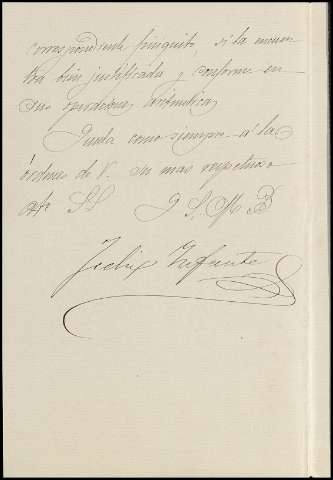 correspondiente finiquito, si la encuen
tra bien justificada y conforme en
sus operaciones aritmeticas
Queda como siempre á las
órdenes de V. su mas respetuoso
afo S S Q S. M. B
Felix Infante